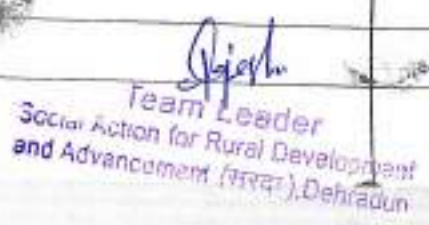 Team Leader
Social Action for Rural Development
and Advancement (सरदा), Dehradun